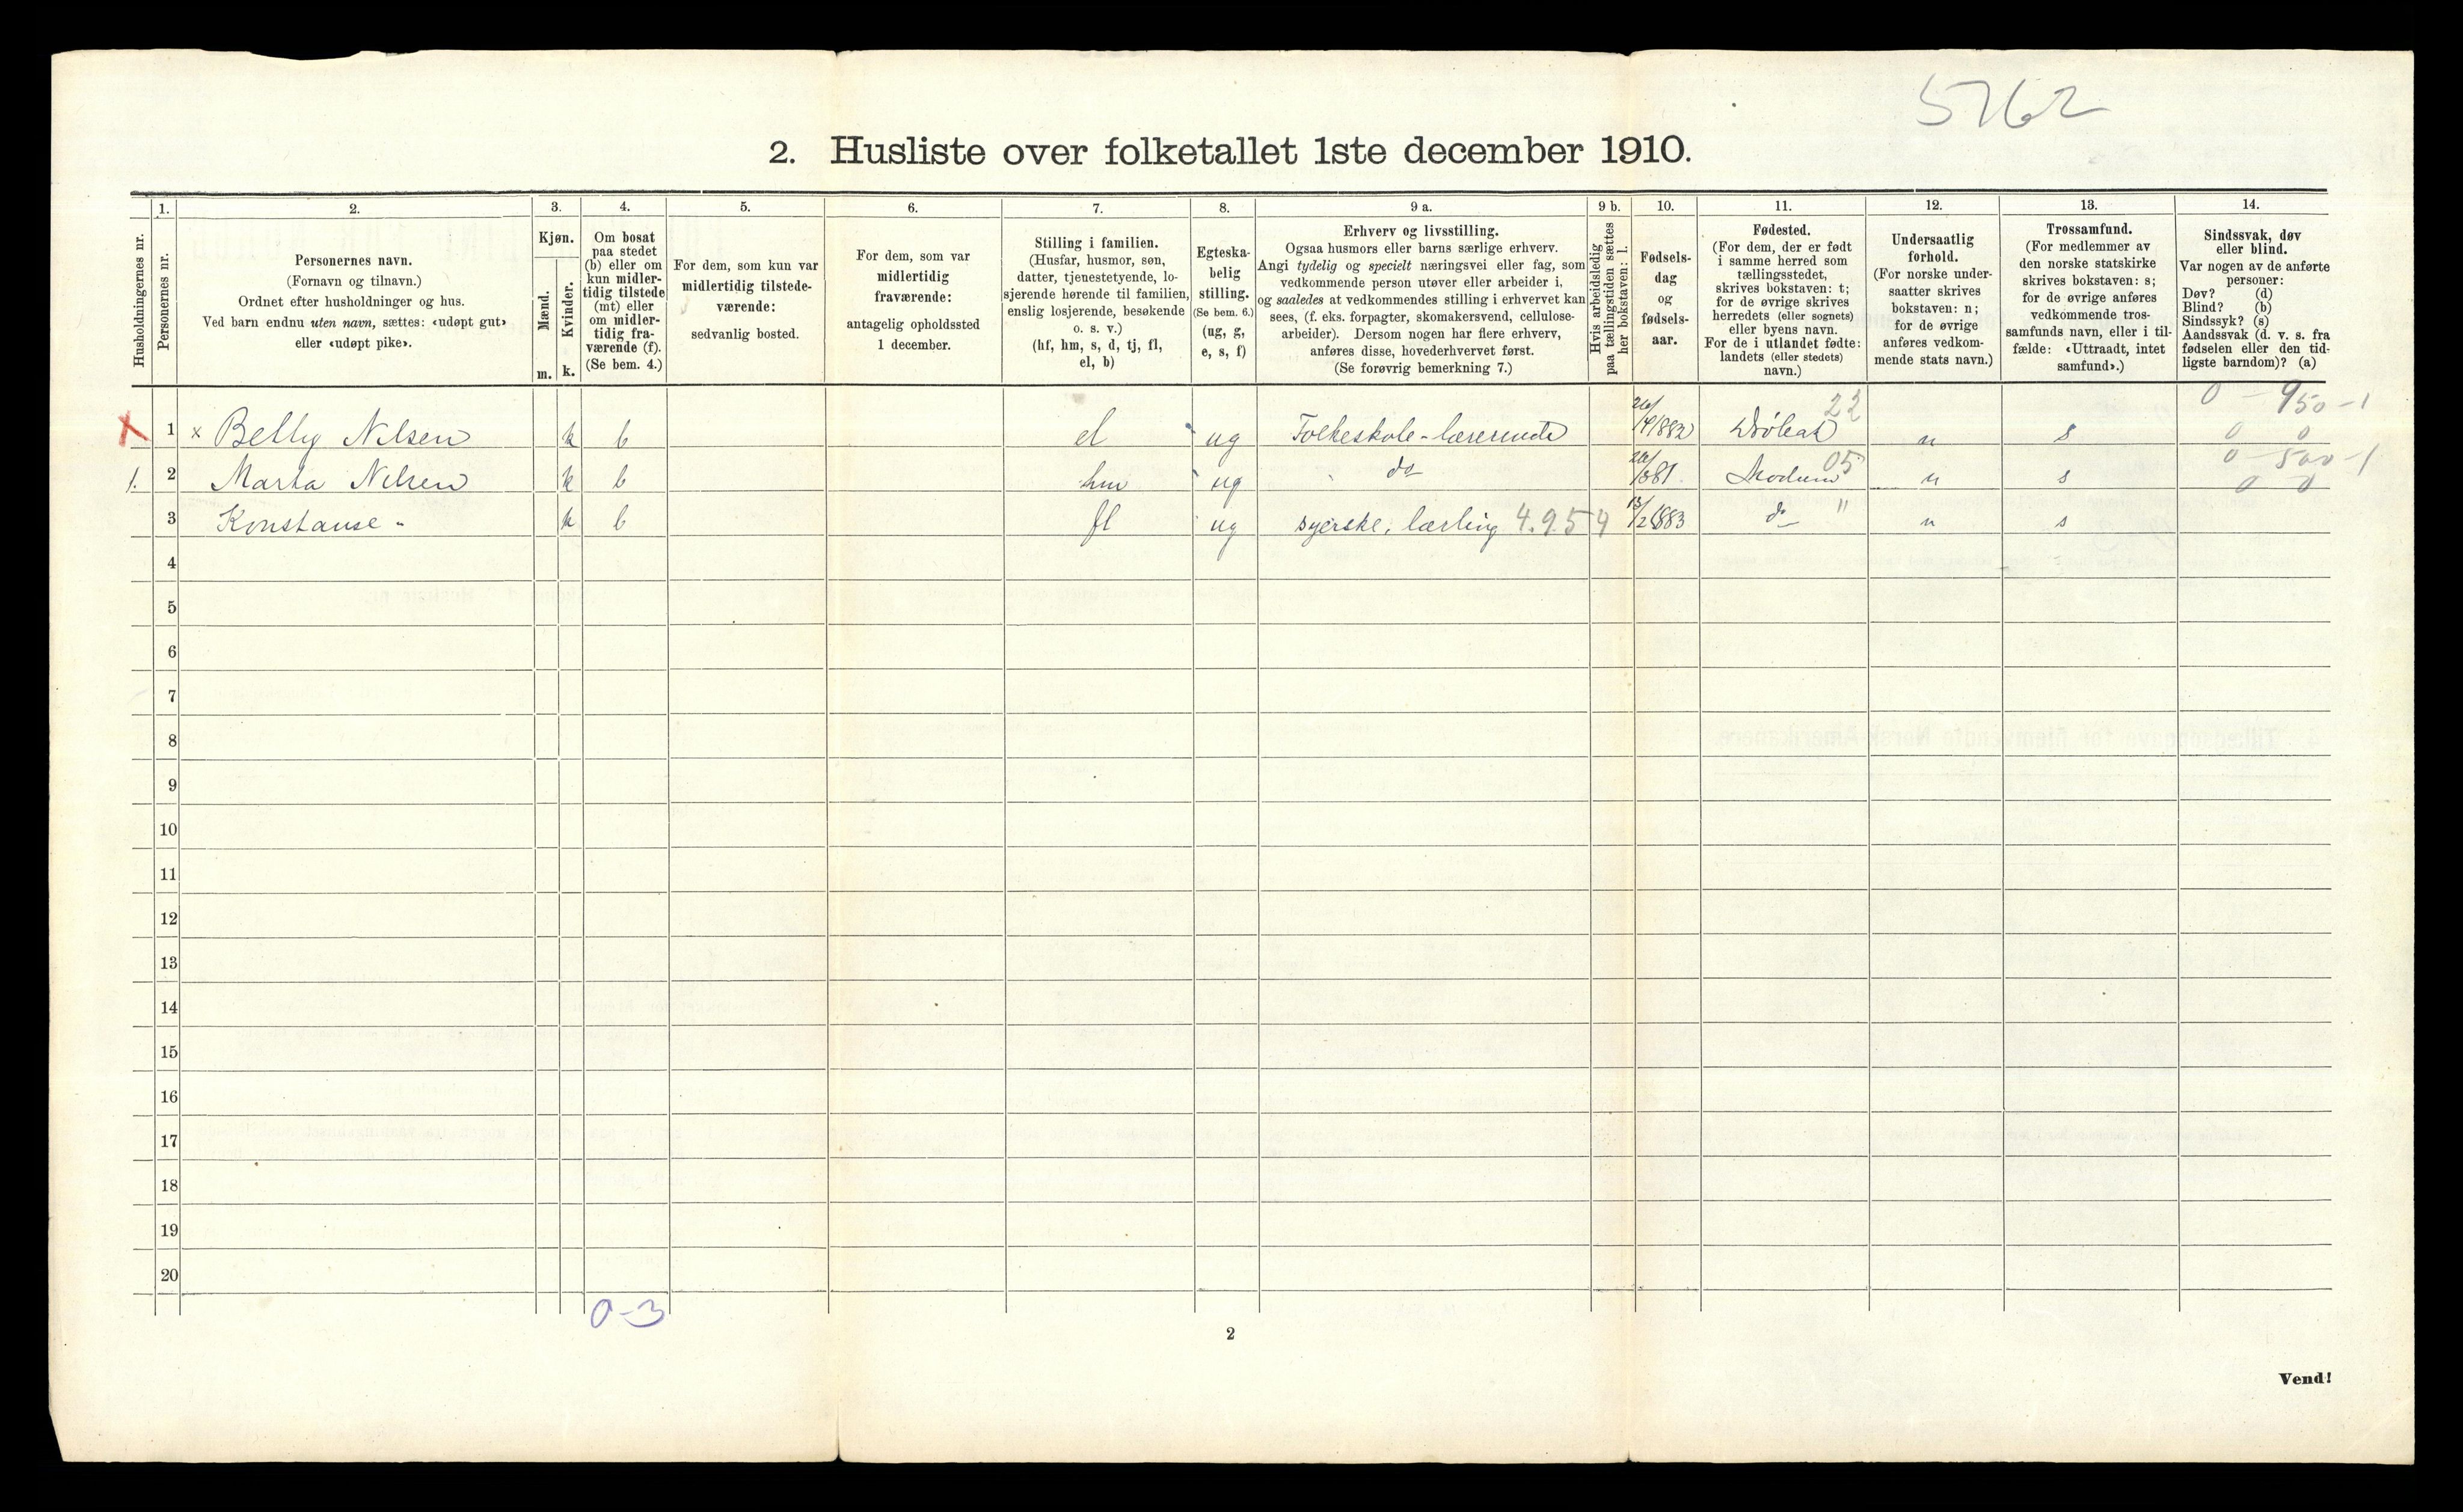 5762
2. Husliste over folketallet 1ste december 1910.
Husholdningernes nr.
1.
Personernes nr.
2.
Personernes navn.
(Fornavn og tilnavn.)
Ordnet efter husholdninger og hus.
Ved barn endnu uten navn, sættes: «udøpt gut»
eller «udøpt pike».
3.
Kjøn.
Mænd.
Kvinder.
m. k.
4.
Om bosat
paa stedet
(b) eller om
kun midler-
tidig tilstede
(mt) eller
om midler-
tidig fra-
værende (f).
(Se bem. 4.)
5.
For dem, som kun var
midlertidig tilstede-
værende:
sedvanlig bosted.
6.
For dem, som var
midlertidig
fraværende:
antagelig opholdssted
1 december.
7.
Stilling i familien.
(Husfar, husmor, søn,
datter, tjenestetyende, lo-
sjerende hørende til familien,
enslig losjerende, besøkende
o. s. v.)
(hf, hm, s, d, tj, fl,
el, b)
8.
Egteska-
belig
stilling.
(Se bem. 6.)
(ug, g,
e, s, f)
9 a.
Erhverv og livsstilling.
Ogsaa husmors eller barns særlige erhverv.
Angi tydelig og specielt næringsvei eller fag, som
vedkommende person utøver eller arbeider i,
og saaledes at vedkommendes stilling i erhvervet kan
sees, (f. eks. forpagter, skomakersvend, cellulose-
arbeider). Dersom nogen har flere erhverv,
anføres disse, hovederhvervet først.
(Se forøvrig bemerkning 7.)
9 b.
Hvis arbeidsledig
paa tællingstiden sættes
her bokstaven: l.
10.
Fødsels-
dag
og
fødsels-
aar.
11.
Fødested.
(For dem, der er født
i samme herred som
tællingsstedet,
skrives bokstaven: t;
for de øvrige skrives
herredets (eller sognets)
eller byens navn.
For de i utlandet fødte:
landets (eller stedets)
navn.)
12.
Undersaatlig
forhold.
(For norske under-
saatter skrives
bokstaven: n;
for de øvrige
anføres vedkom-
mende stats navn.)
13.
Trossamfund.
(For medlemmer av
den norske statskirke
skrives bokstaven: s;
for de øvrige anføres
vedkommende tros-
samfunds navn, eller i til-
fælde: «Uttraadt, intet
samfund».)
14.
Sindssvak, døv
eller blind.
Var nogen av de anførte
personer:
Døv? (d)
Blind? (b)
Sindssyk? (s)
Aandssvak (d. v. s. fra
fødselen eller den tid-
ligste barndom)? (a)
22 0 - 950 - 1
X 1 x Betty Nilsen k b el ug Folkeskole-lærerinde n s 0 0
05 0 - 500 - 1
1. 2 Marta Nilsen k b hm ug do Modum n s 0 0
3 Konstanse " k b fl ug syerske, lærling 4.954 13/2 1883 do " n s
4
5
6
7
8
9
10
11
12
13
14
15
16
17
18
19
20
0-3
2
Vend!